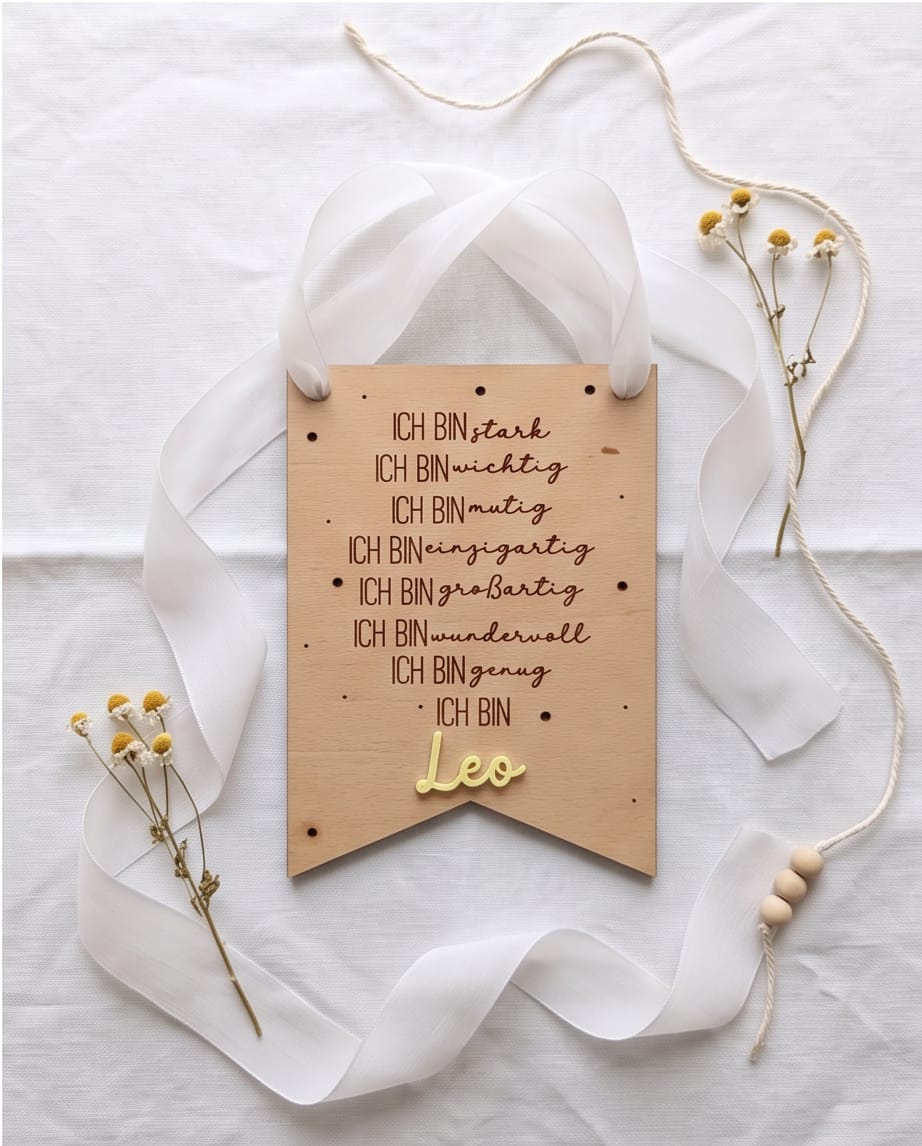 ICH BIN stark
ICH BIN wichtig
ICH BIN mutig
ICH BIN einzigartig
ICH BIN großartig
ICH BIN wundervoll
ICH BIN genug
ICH BIN
Leo